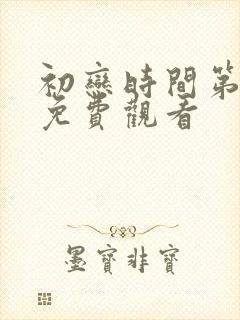 初戀時間第
免費觀看
墨寶非寶